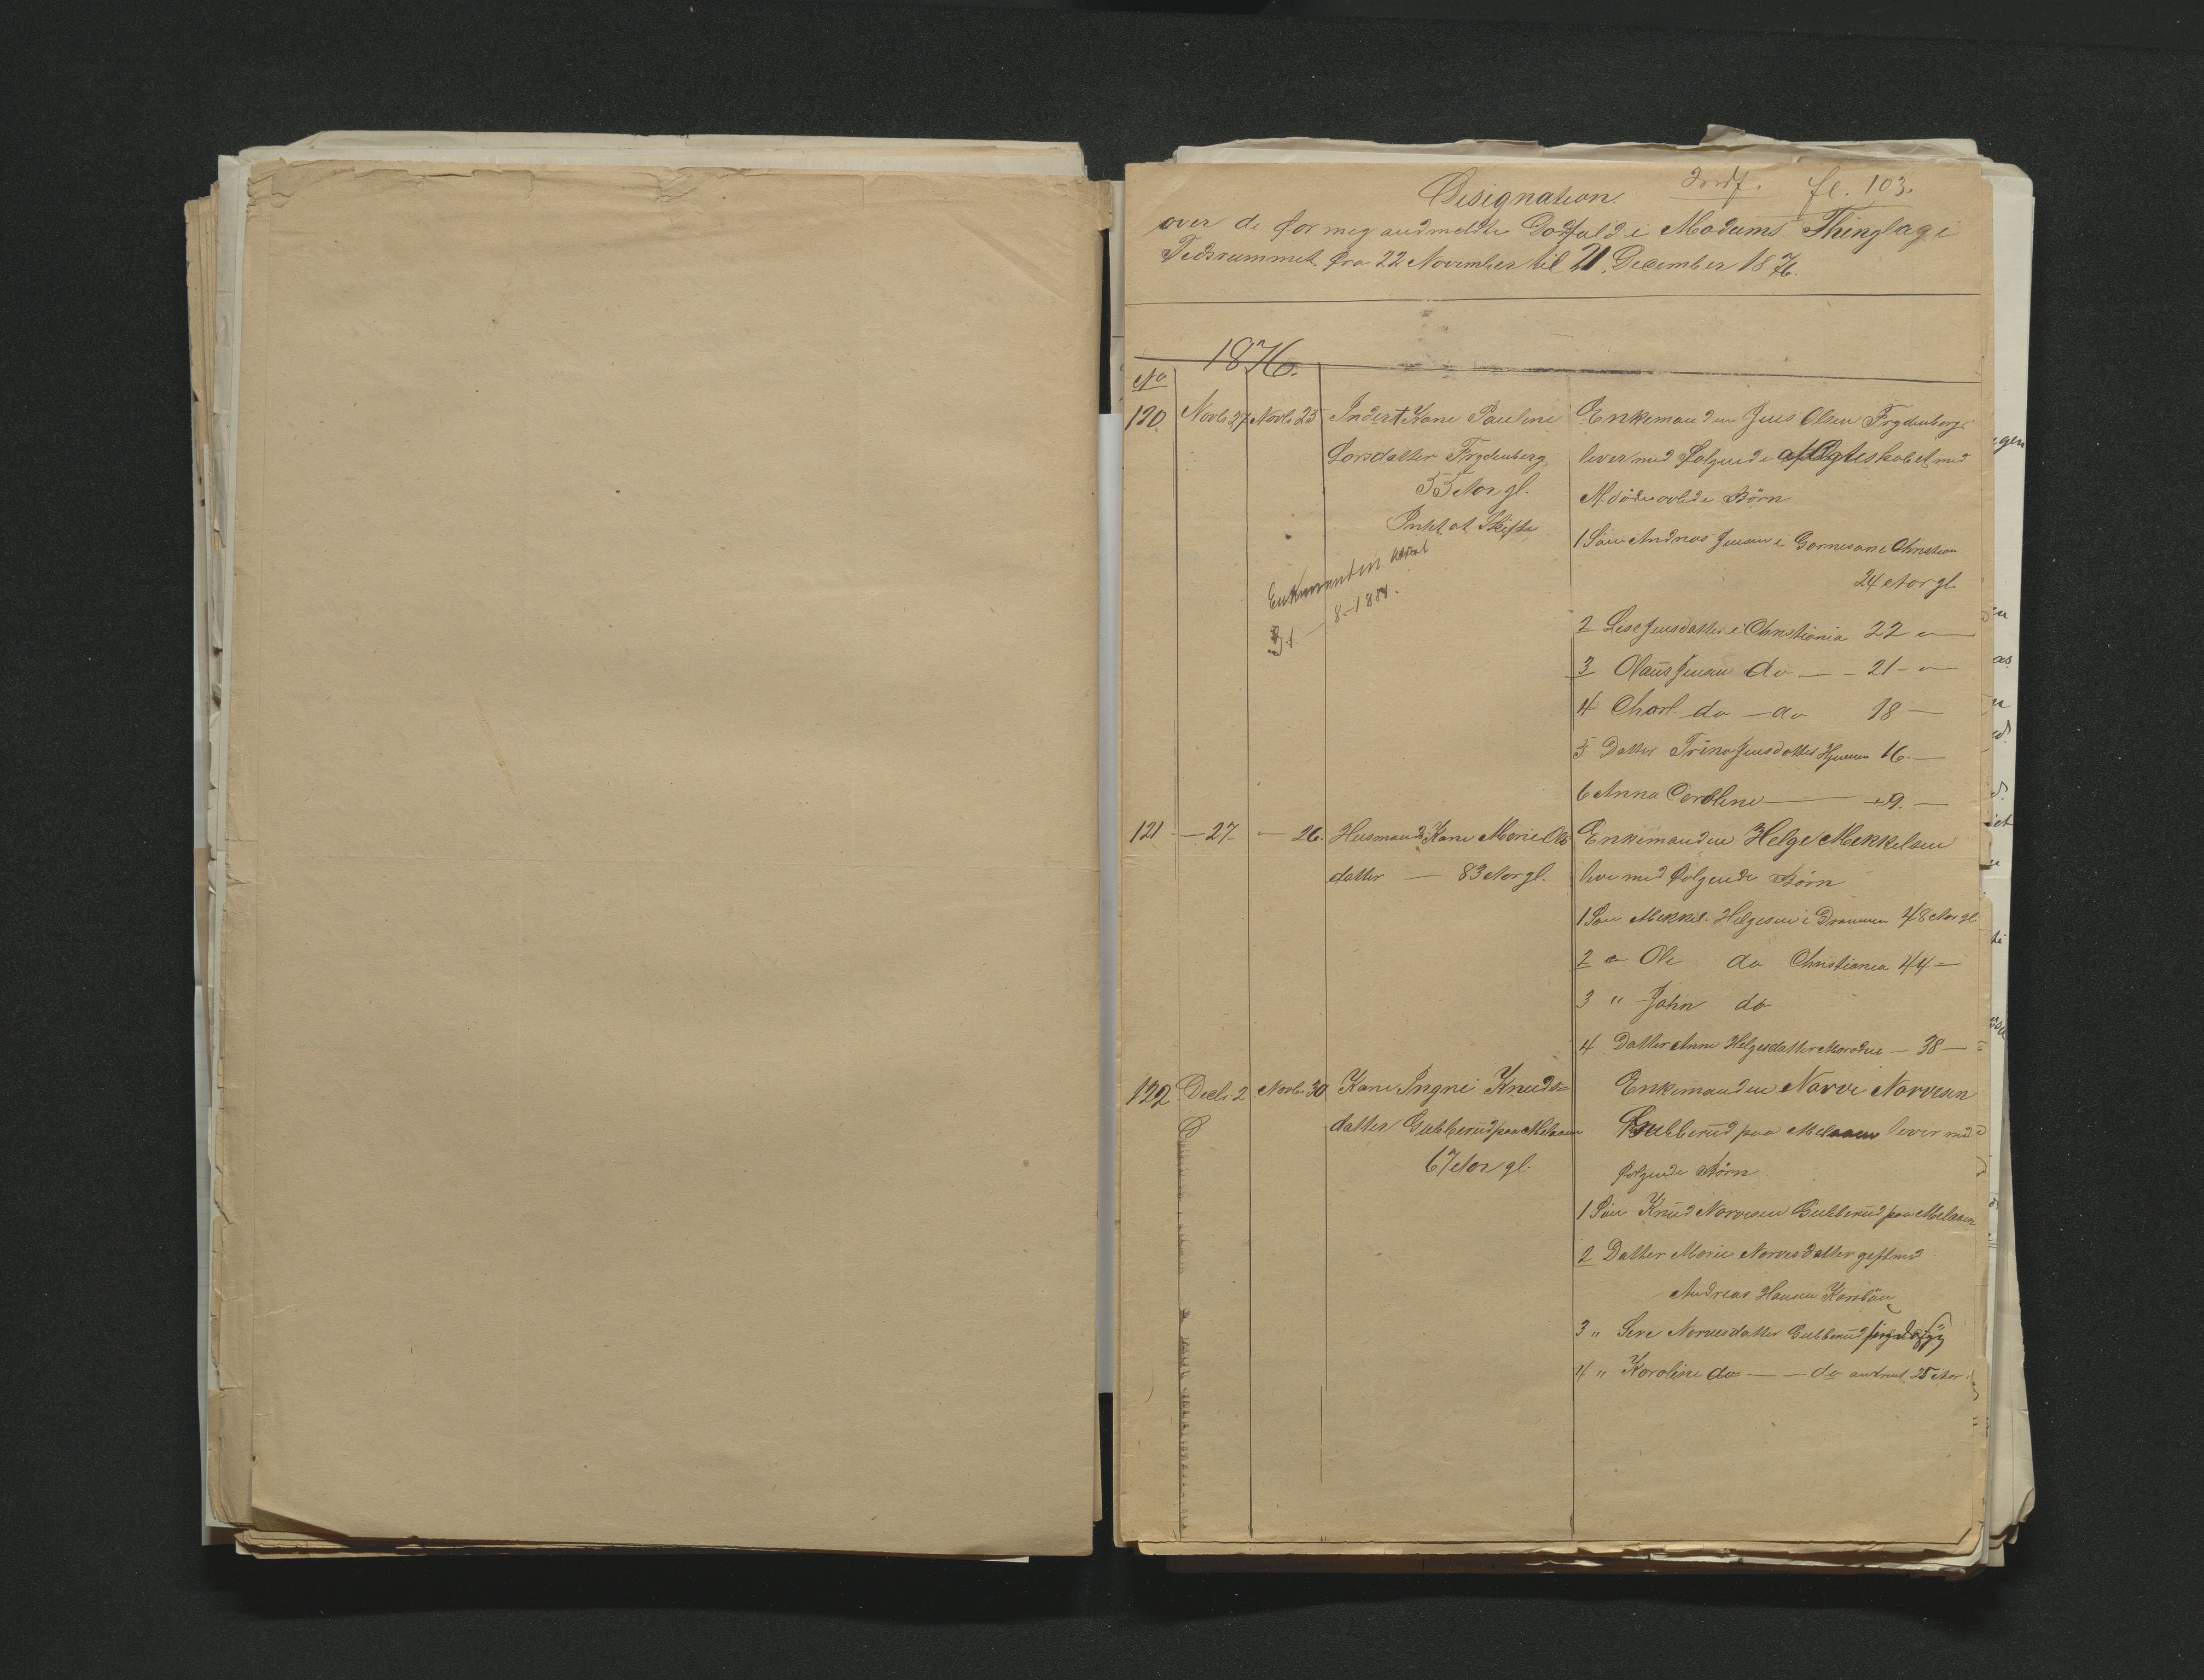 Designation
Indf. fl. 103.
over de for meg andmeldte Dødsfald i Modums Thinglag i
Tidsrummet fra 22 November til 21 December 1876.
1876.
No
120 Novb 27 Novb 25 Inderst Kone Pauline
Larsdatter Frydenberg
55 Aar gl.
Intet at Skifte
Enkemanden
31 - 8 - 1884.
Enkemanden Jens Olsen Frydenberg
lever med følgende af Ægteskabet med
avlede Börn
1 Sön Andreas Jensen i Christian
24 Aar gl.
2 Lise Jensdatter i Christiania 22 "
3 Olaus Jensen do — - 21 - "
4 Charl. do — do 18 —
5 Datter Trina Jensdatter Hjemme 16. —
6 Anna Caroline — 9. —
121 — 27 — 26. Husmands Kone Marie Ols
datter — 83 Aar gl.
Enkemanden Helge Mekkelsen
lever med følgende Börn
1 Sön Mekkel Helgesen i Drammen 48 Aar gl.
2 " Ole do Christiania 44 —
3 " John do
4 Datter Anne Helgesdatter — 38 —
122 Decb. 2 Novb 30 Kone Ingri Knuds=
datter Gubberud paa Melaaen
67 Aar gl.
Enkemanden Narve Narvesen
Gubberud paa Melaaen lever med
følgende Börn
1 Sön Knud Narvesen Gubberud paa Melaaen
2 Datter Marie Narvesdatter gift med
Andreas Hansen
3 " Narvesdatter Gubberud
4 " Karoline do — — do omtrent 25 Aar.